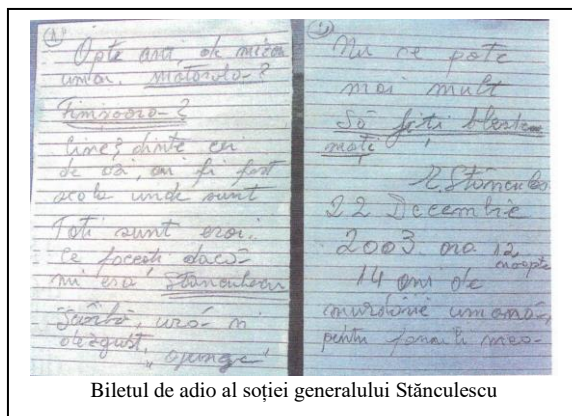 Opte ani, de
Motorola-?
Timișoara-?
Cine? dintre cei
de azi, ar fi fost
acolo unde sunt
Toți sunt eroi.
Ce faceați dacă
nu era Stănculescu
Scârbă, ură și
dezgust, "ajunge"
Nu se poate
mai mult
Să fiți bleste-
mați
Stănculescu
22 Decembrie
2003. ora 12
noapte
14 ani de
murdărie umană,
pentru familia mea-
Biletul de adio al soției generalului Stănculescu